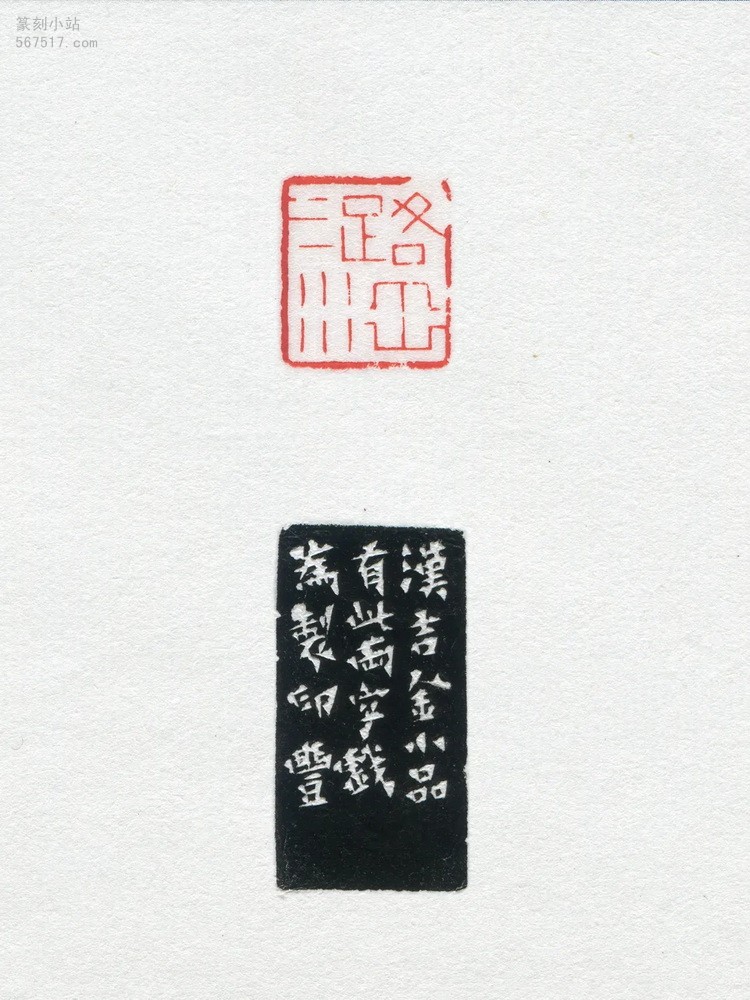 篆刻小站
567517.com
路
漢吉金小品
有此兩字戲
為製印豐